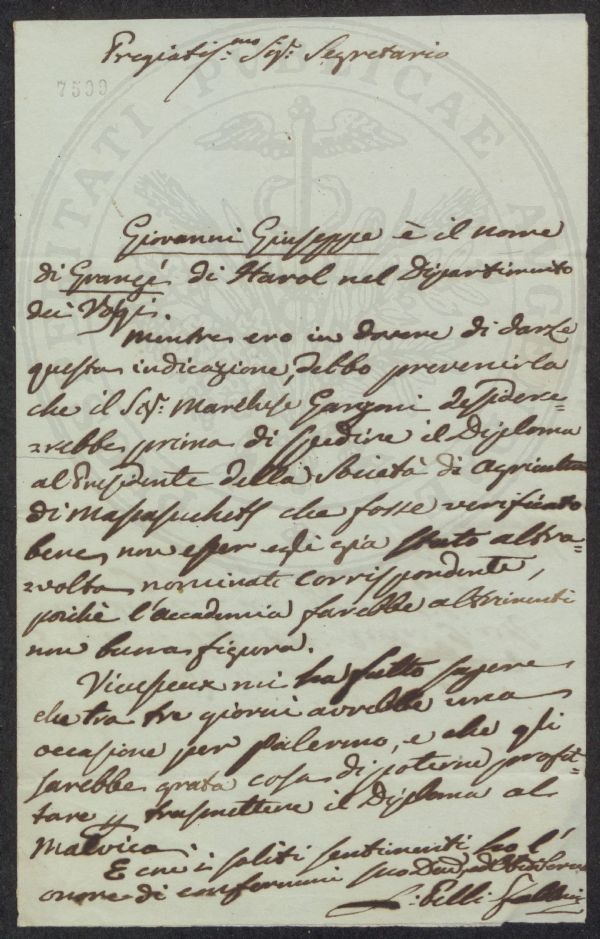 Pregiatis.mo Sig.r Segretario
7599
PUBLICAE
Giovanni Giuseppe è il nome
di Grangé di Harol nel Dipartimento
dei Vosgi.
Mentre ero in dovere di darle
questa indicazione, debbo prevenirla
che il Sig.r Marchese Garzoni desidere=
=rebbe prima di spedire il Diploma
al Presidente della Società di Agricoltura
di Massasuchets che fosse verificato
bene non esser egli già stato altra=
=volta nominato corrispondente,
poichè l'Accademia farebbe altrimenti
non buona figura.
Vieusseux mi ha fatto sapere
che tra tre giorni avrebbe una
occasione per Palermo, e che gli
sarebbe grata cosa di poterne profit=
tare p trasmettere il Diploma al
Malvica.
E con i soliti sentimenti ho l'
onore di confermarmi suo
L. Pelli Fabbroni